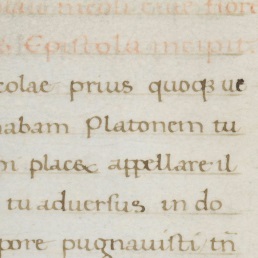 s Epistola incipit.
colae prius quoqȝ ue
nabam Platonem tu
ni place appellare il
tu aduersus in do
pore pugnauisti tñ